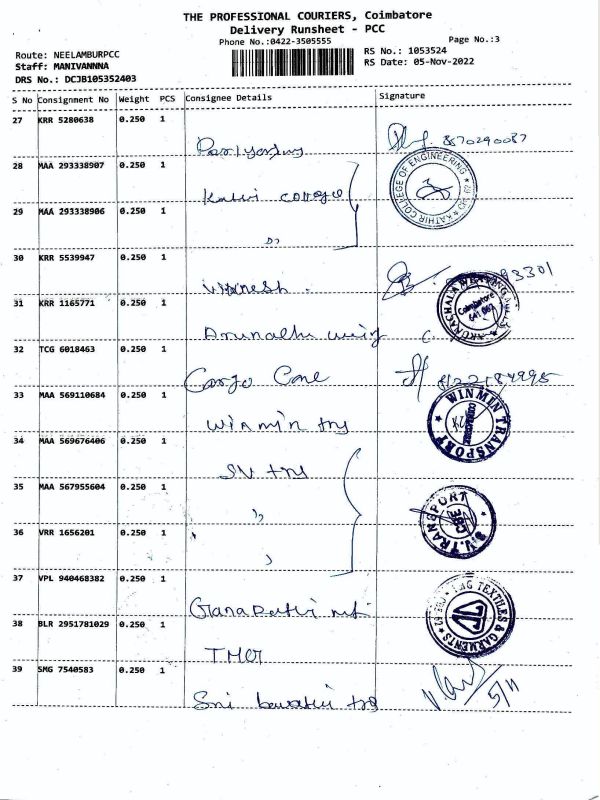 THE PROFESSIONAL COURIERS, Coimbatore
Delivery Runsheet - PCC
Phone No.:0422-3505555
Page No.:3
Route: NEELAMBURPCC
RS No.: 1053524
Staff: MANIVANNNA
RS Date: 05-Nov-2022
DRS No.: DCJB105352403
S No Consignment No Weight PCS Consignee Details Signature
27 KRR 5280638 0.250 1
8870290087
28 MAA 293338907 0.250 1
Kathir college
KATHIR COLLEGE OF ENGINEERING
29 MAA 293338906 0.250 1
"
30 KRR 5539947 0.250 1
Vignesh.
93301
31 KRR 1165771 0.250 1
Coimbatore
32 TCG 6018463 0.250 1
Cargo Care
33 MAA 569110684 0.250 1
Winmin try
WINMIN TRANSPORT
34 MAA 569676406 0.250 1
SV try
35 MAA 567955604 0.250 1
"
S.V.TRANSPORT
CBE
36 VRR 1656201 0.250 1
"
37 VPL 940468382 0.250 1
TMG TEXTILES & GARMENTS
38 BLR 2951781029 0.250 1
TMG
39 SMG 7540583 0.250 1
5/11
Sri